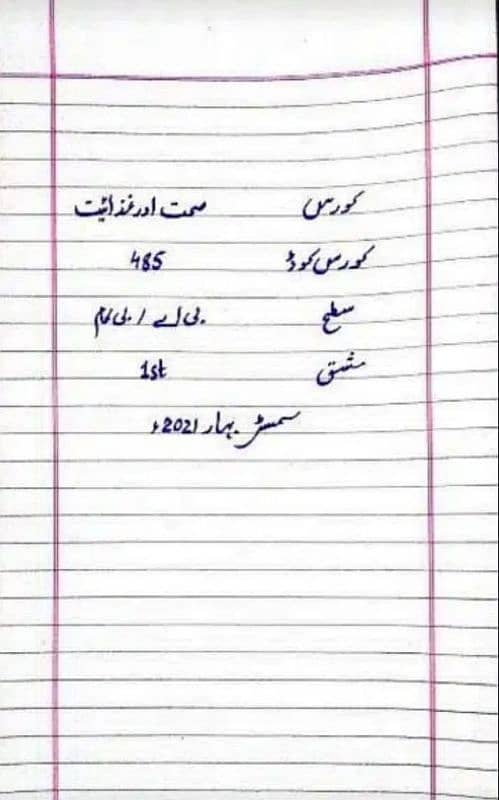 کورس صحت اور غذائیت
کورس کوڈ 485
سطح بی اے / بی کام
مشق 1st
سمسٹر بہار 2021ء